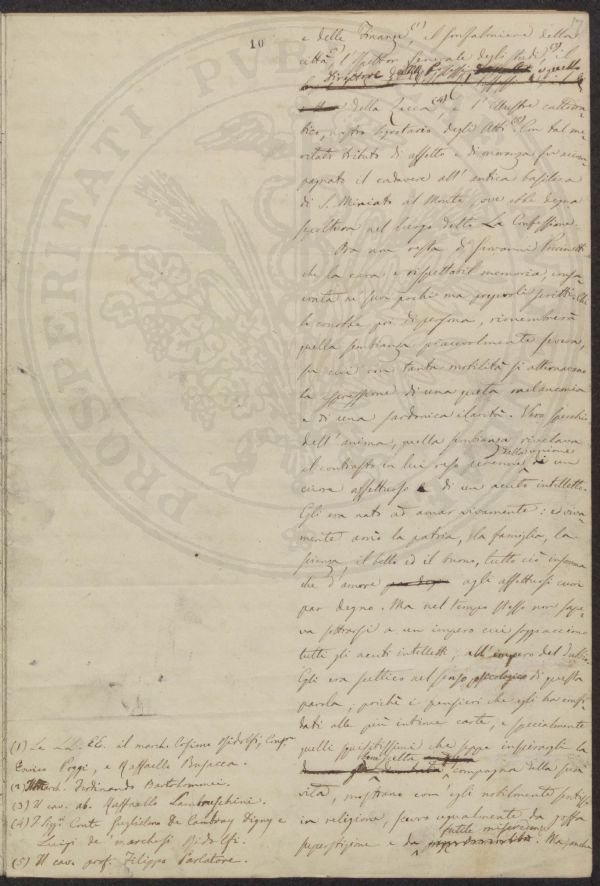 10
e delle Finanze (1), il gonfaloniere della
città (2), l'Ispettor Generale degli studi (3), il
Direttore
della Zecca (4), e l'illustre cattedra-
tico, nostro Segretario degli Atti (5). Con tal me-
ritato tributo di affetto e di onoranza fu accom-
pagnato il cadavere all'antica basilica
di S. Miniato al Monte, ove ebbe degna
sepoltura nel luogo detto La Confessione.
Ora non resta di Giovanni
che la cara e rispettabil memoria, consa-
crata ne' suoi pochi ma pregevoli scritti. Chi
lo conobbe poi di persona, rimembrerà
quella sembianza piacevolmente severa,
su cui con tanta mobilità si alternavano
la espressione di una quieta melanconia
e di una sardonica ilarità. Vero specchio
dell'anima, quella sembianza rivelava
il contrasto in lui reso perenne dalla unione di un
cuore affettuoso e di un acuto intelletto.
Egli era nato ad amar vivamente: e viva-
mente amò la patria, la famiglia, la
scienza, il bello ed il buono, tutto ciò insomma
che d'amore agli affettuosi cuori
par degno. Ma nel tempo stesso non sape-
va sottrarsi a un impero cui soggiacciono
tutti gli acuti intelletti; all'impero del Dubbio.
Egli era scettico nel senso psicologico di questa
parola, poichè i pensieri che egli ha confi-
dati alle più intime carte, e specialmente
quelli squisitissimi che seppe inspiragli la
scelta compagna della sua
vita, mostrano com'egli nobilmente sentisse
in religione, scevro ugualmente da goffa
superstizione e da futile miscredenza. Ma anche
(1) Le LL. EE. il march. Cosimo Ridolfi, Cav.
Enrico Poggi, e Raffaello Busacca.
(2) March. Ferdinando Bartolommei.
(3) Il cav. ab. Raffaello Lambruschini.
(4) I Sigg. Conte Guglielmo de Cambray Digny e
Luigi de' marchesi Ridolfi.
(5) Il cav. prof. Filippo Parlatore.
PROSPERITATI PUB